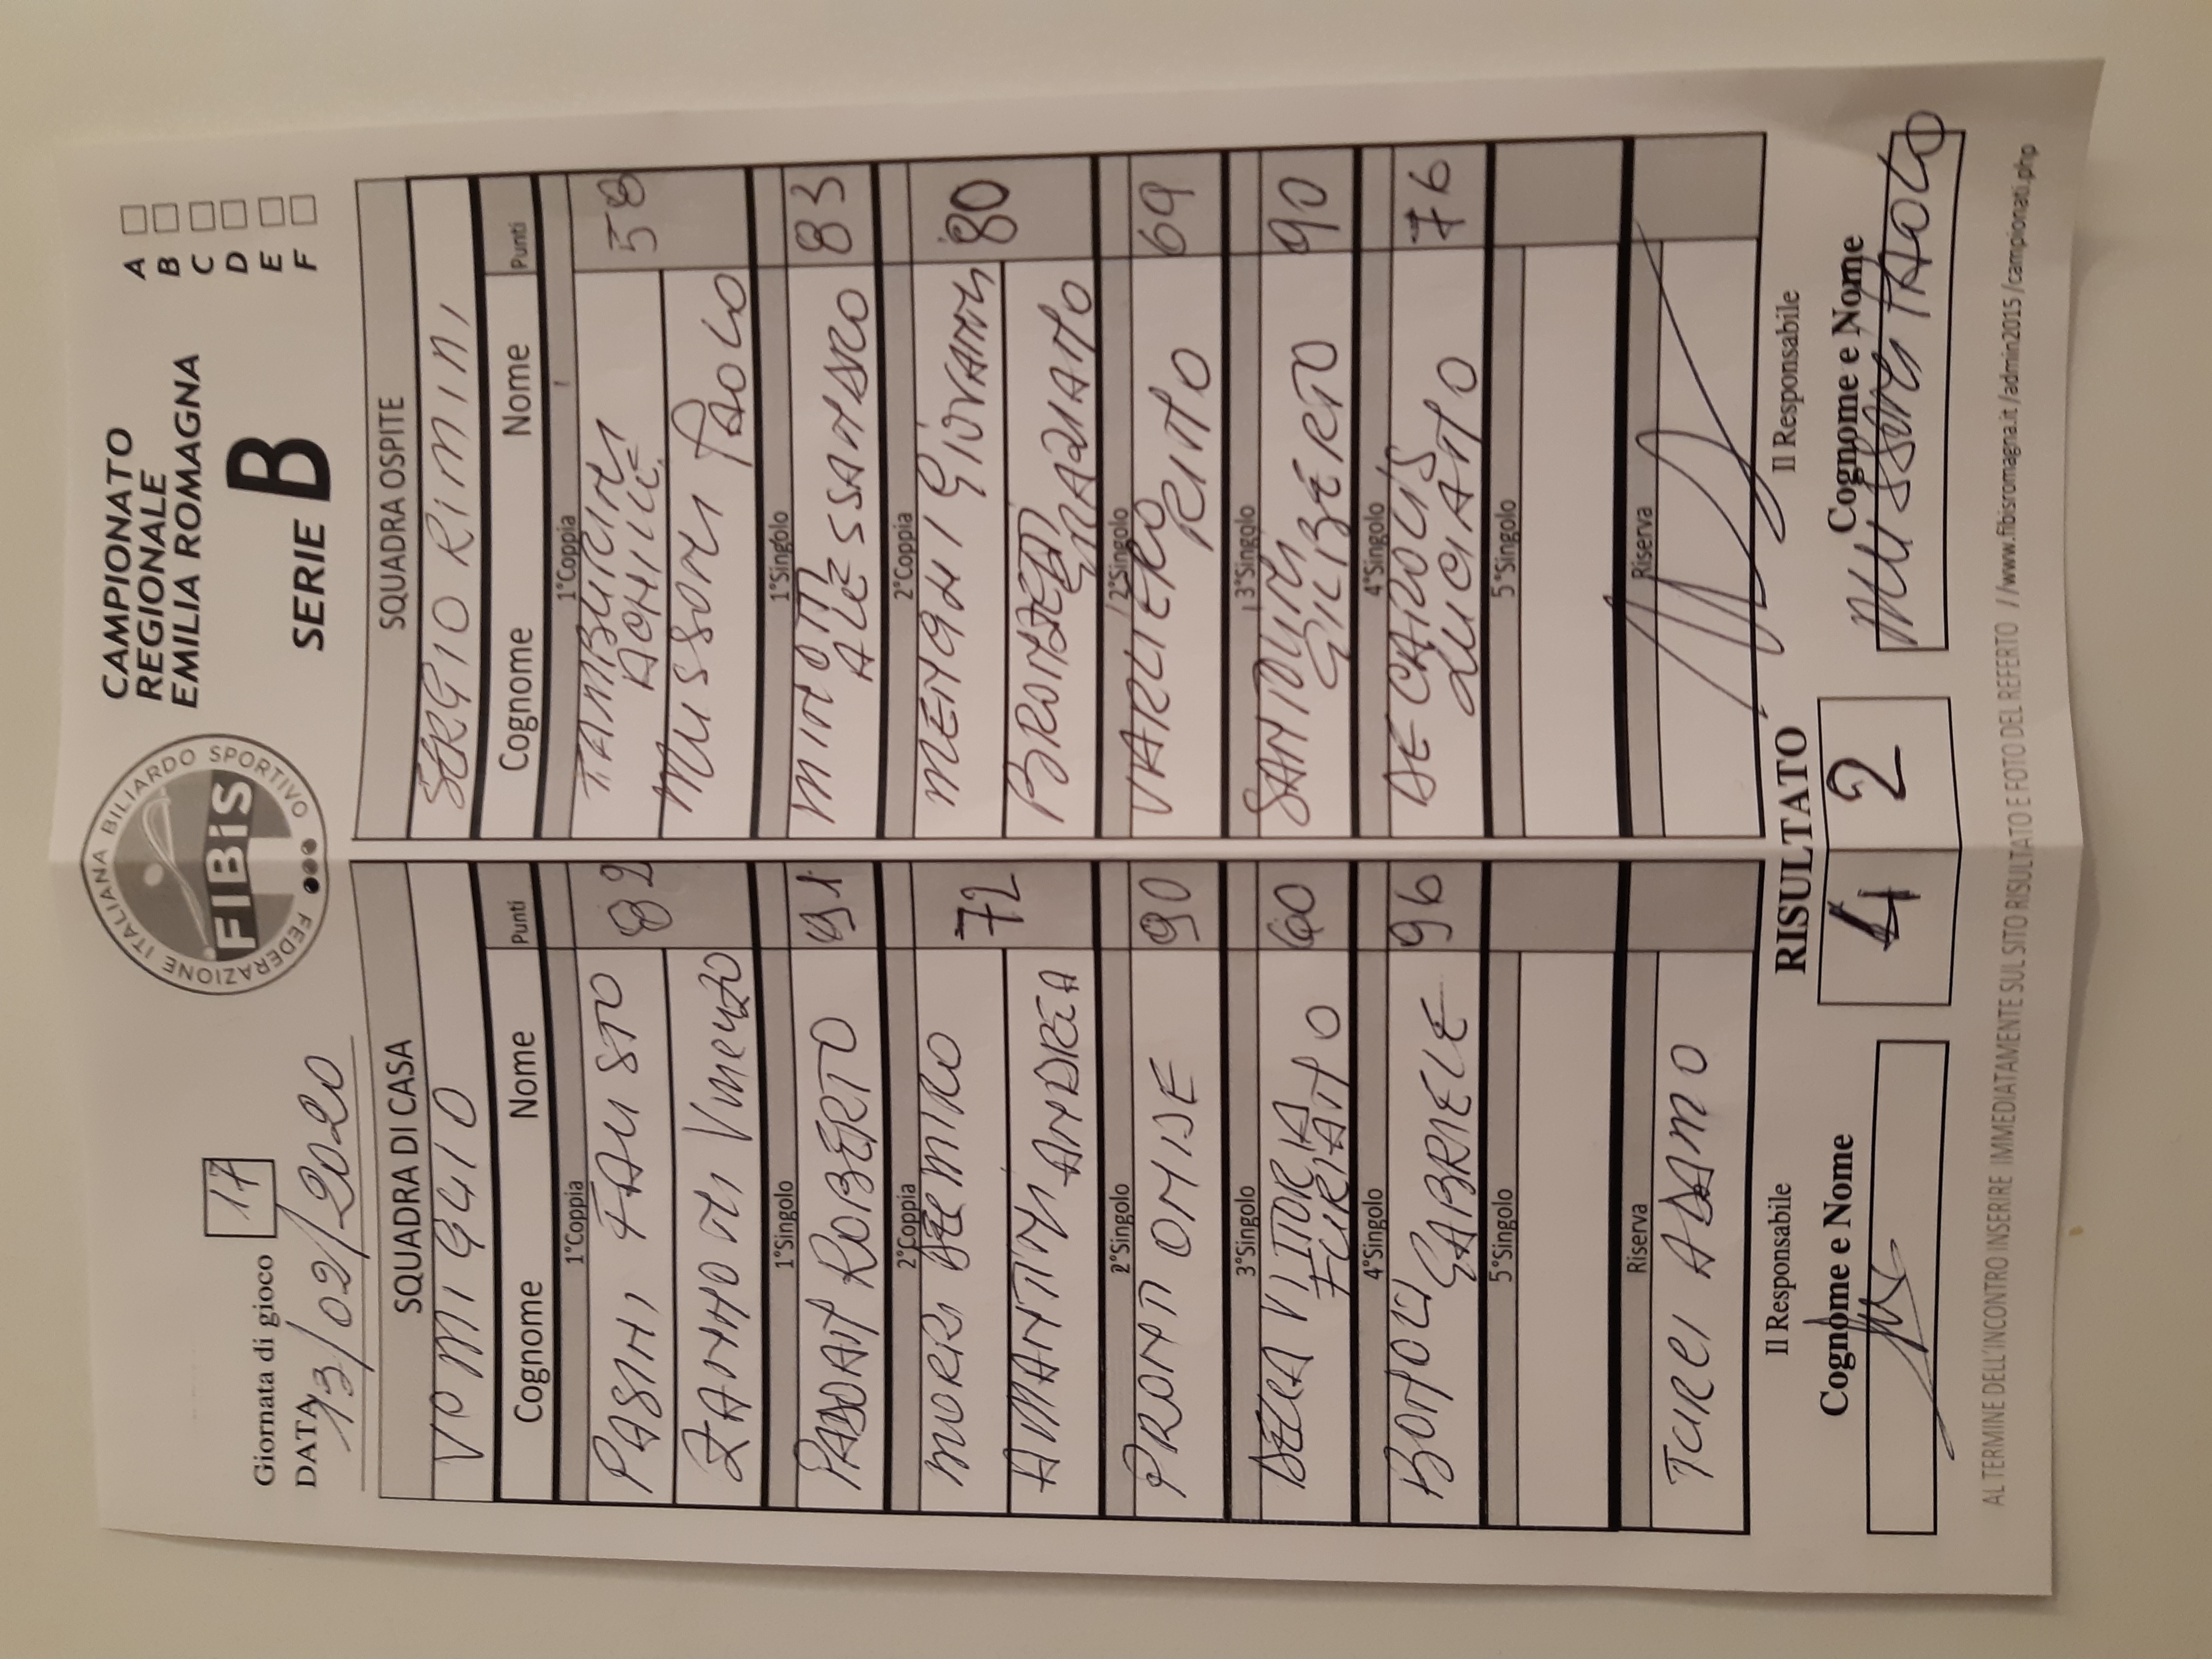 Giornata di gioco 17
DATA 13/02/2020
FEDERAZIONE ITALIANA BILIARDO SPORTIVO
FIBiS
CAMPIONATO
REGIONALE
EMILIA ROMAGNA
SERIE B
A
B
C
D
E
F
SQUADRA DI CASA
SQUADRA OSPITE
SERGIO RIMINI
Cognome Nome Punti
Cognome Nome Punti
1°Coppia
1°Coppia
PASINI FAUSTO 82
TAMBURINI
ACHILLE 58
ZANNONI Vincenzo
MUSSONI PAOLO
1°Singolo
1°Singolo
ROBERTO 91
MINOTTI
ALESSANDRO 83
2°Coppia
2°Coppia
MORRI DELMIRO 72
MENGHI GIOVANNI 80
AMANTINI ANDREA
BRONZETTI
GRAZIANO
2°Singolo
2°Singolo
PRONTI OMIDE 90
VARLIERO
RINO 69
3°Singolo
3°Singolo
DELLA VITTORIA
60
SANTOLINI
GILBERTO 90
4°Singolo
4°Singolo
GABRIELE 96
DE CAROLIS
LUCIANO 76
5°Singolo
5°Singolo
Riserva
Riserva
TURCI ADAMO
Il Responsabile
RISULTATO
Il Responsabile
Cognome e Nome
4 2
Cognome e Nome
MUSSONI PAOLO
AL TERMINE DELL'INCONTRO INSERIRE IMMEDIATAMENTE SUL SITO RISULTATO E FOTO DEL REFERTO //www.fibisromagna.it/admin2015/campionati.php